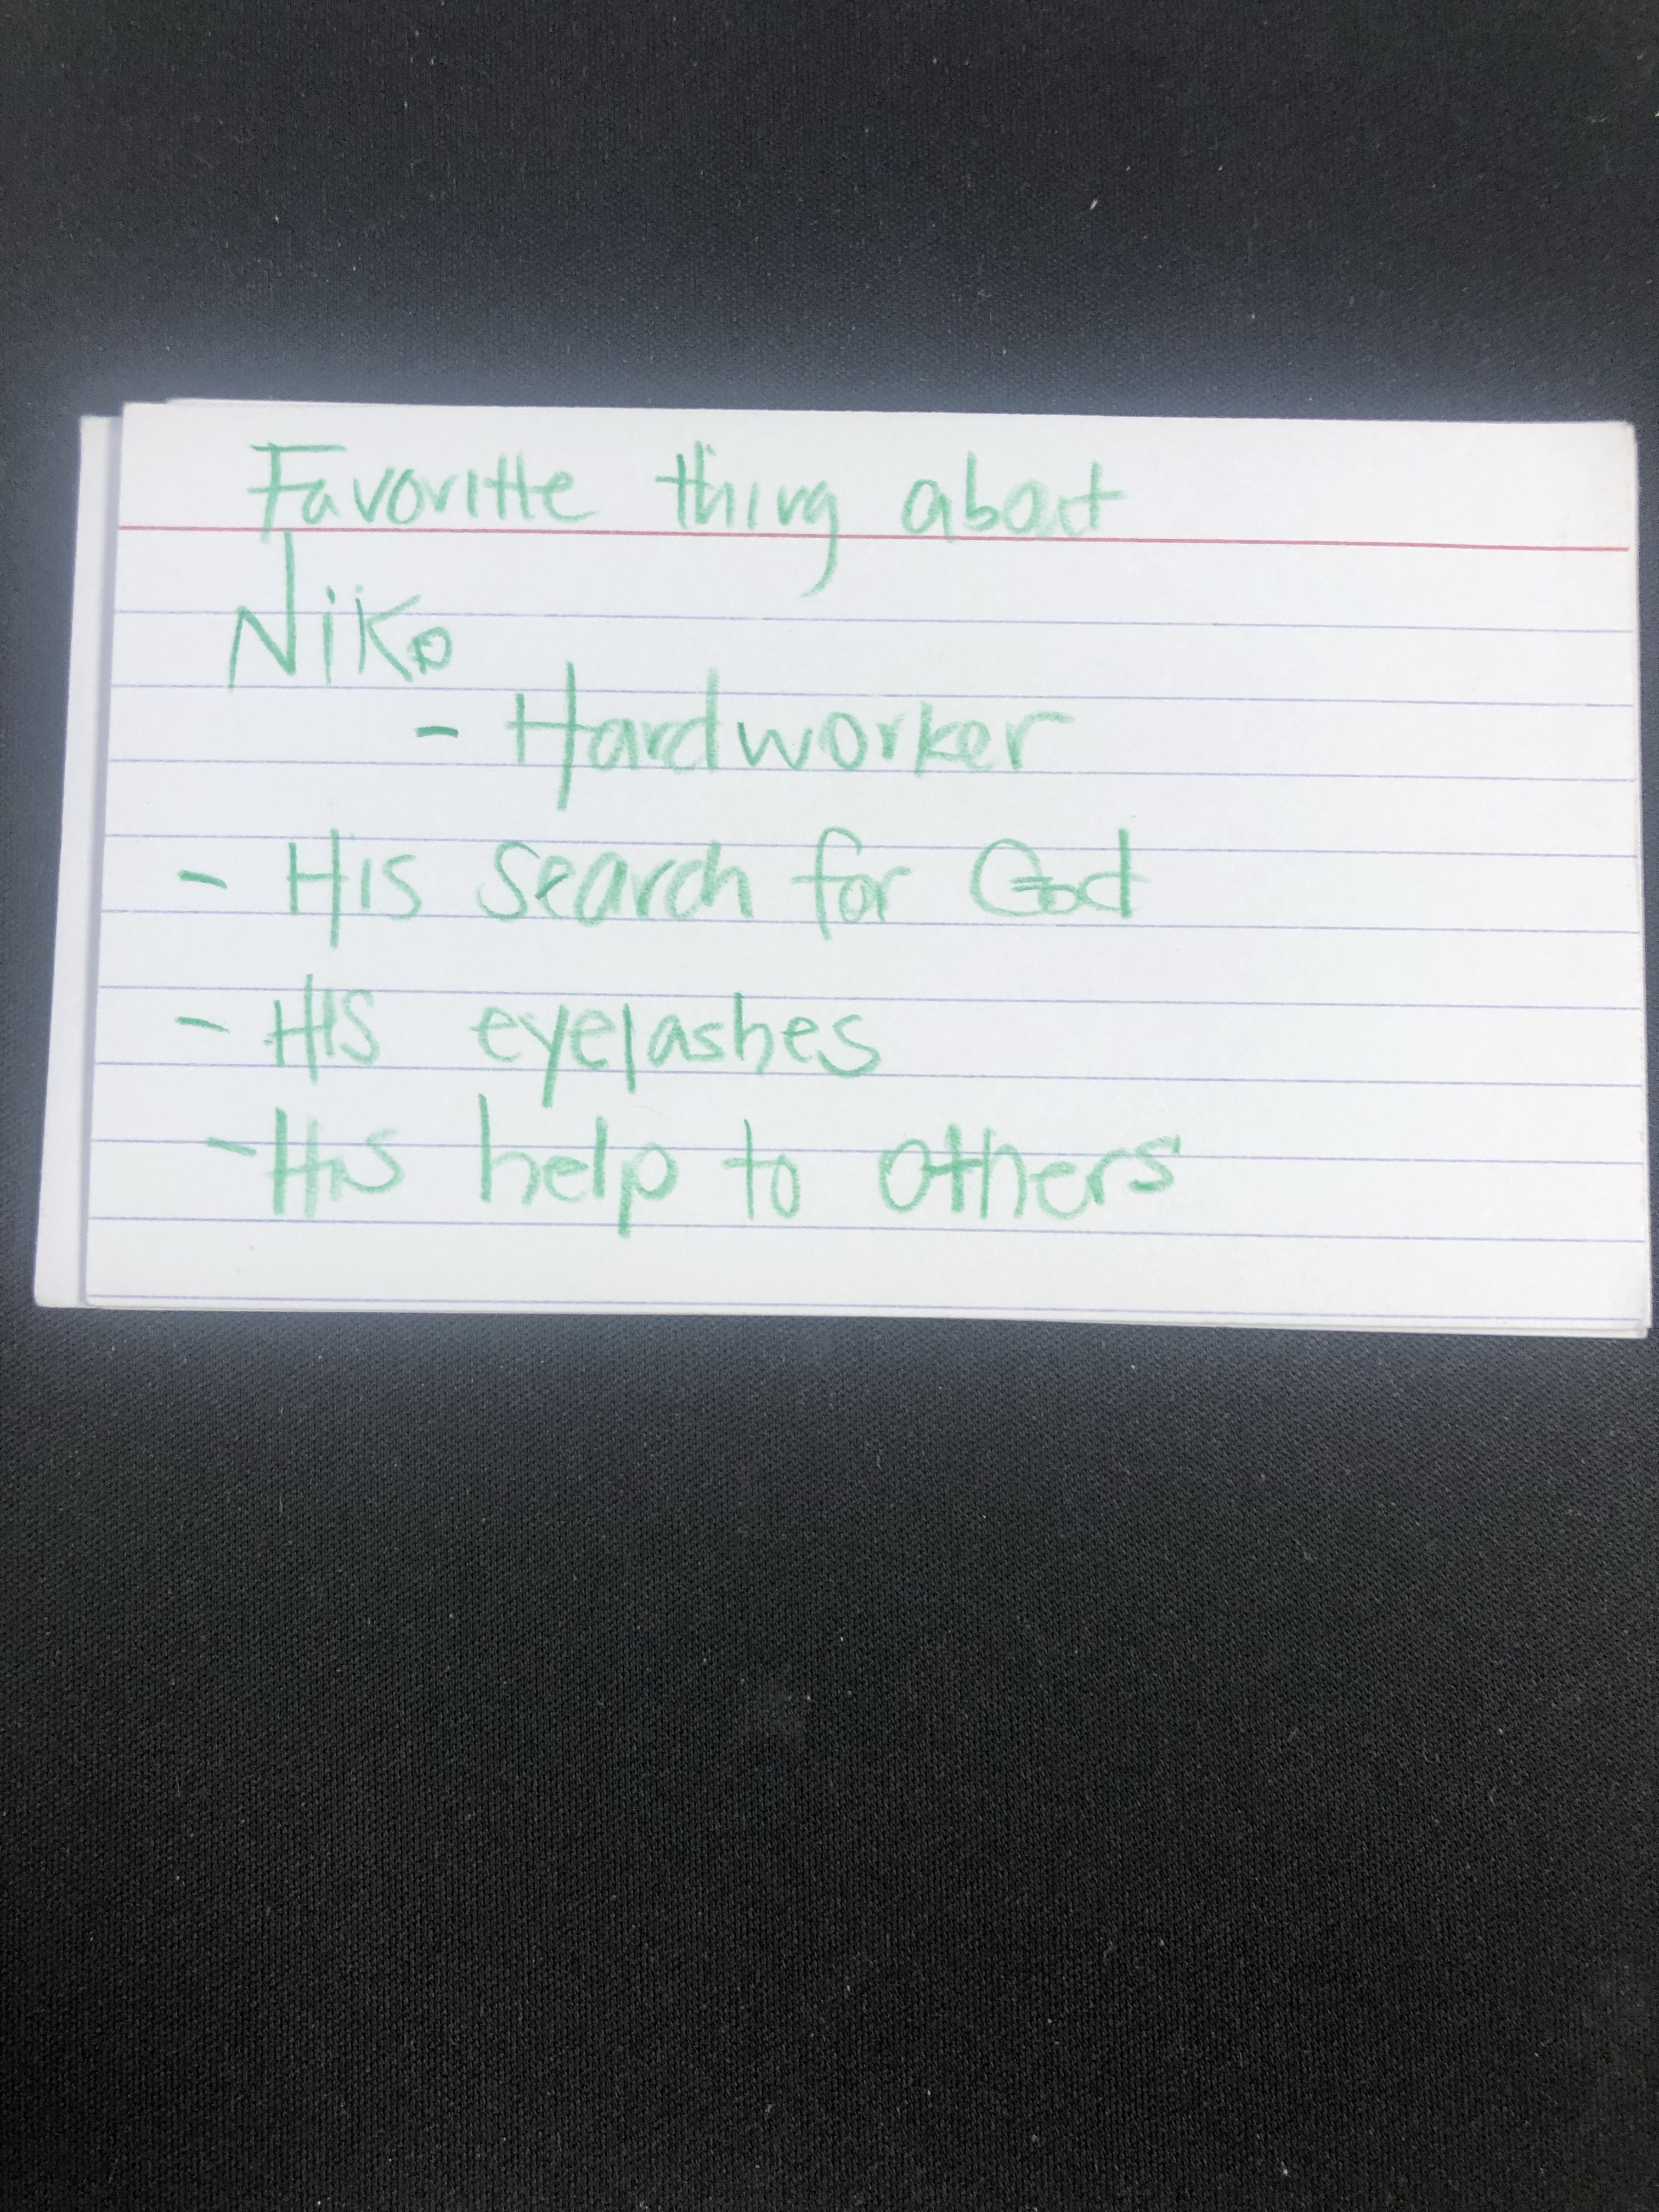 Favoritte thing about
Niko
- Hardworker
- His search for God
- His eyelashes
- His help to others